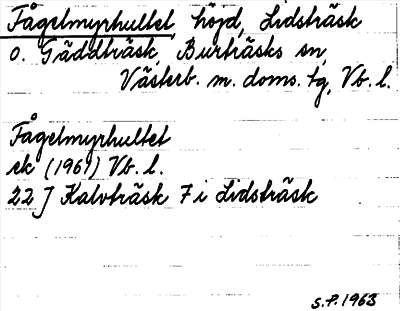 Fågelmyrhultet, höjd, Lidsträsk
o. Gäddträsk, Burträsks sn,
Västerb. m. doms. tg, Vb. l.
Fågelmyrhultet
ek (1961) Vb. l.
22 J Kalvträsk 7 i Lidsträsk
S.P. 1963